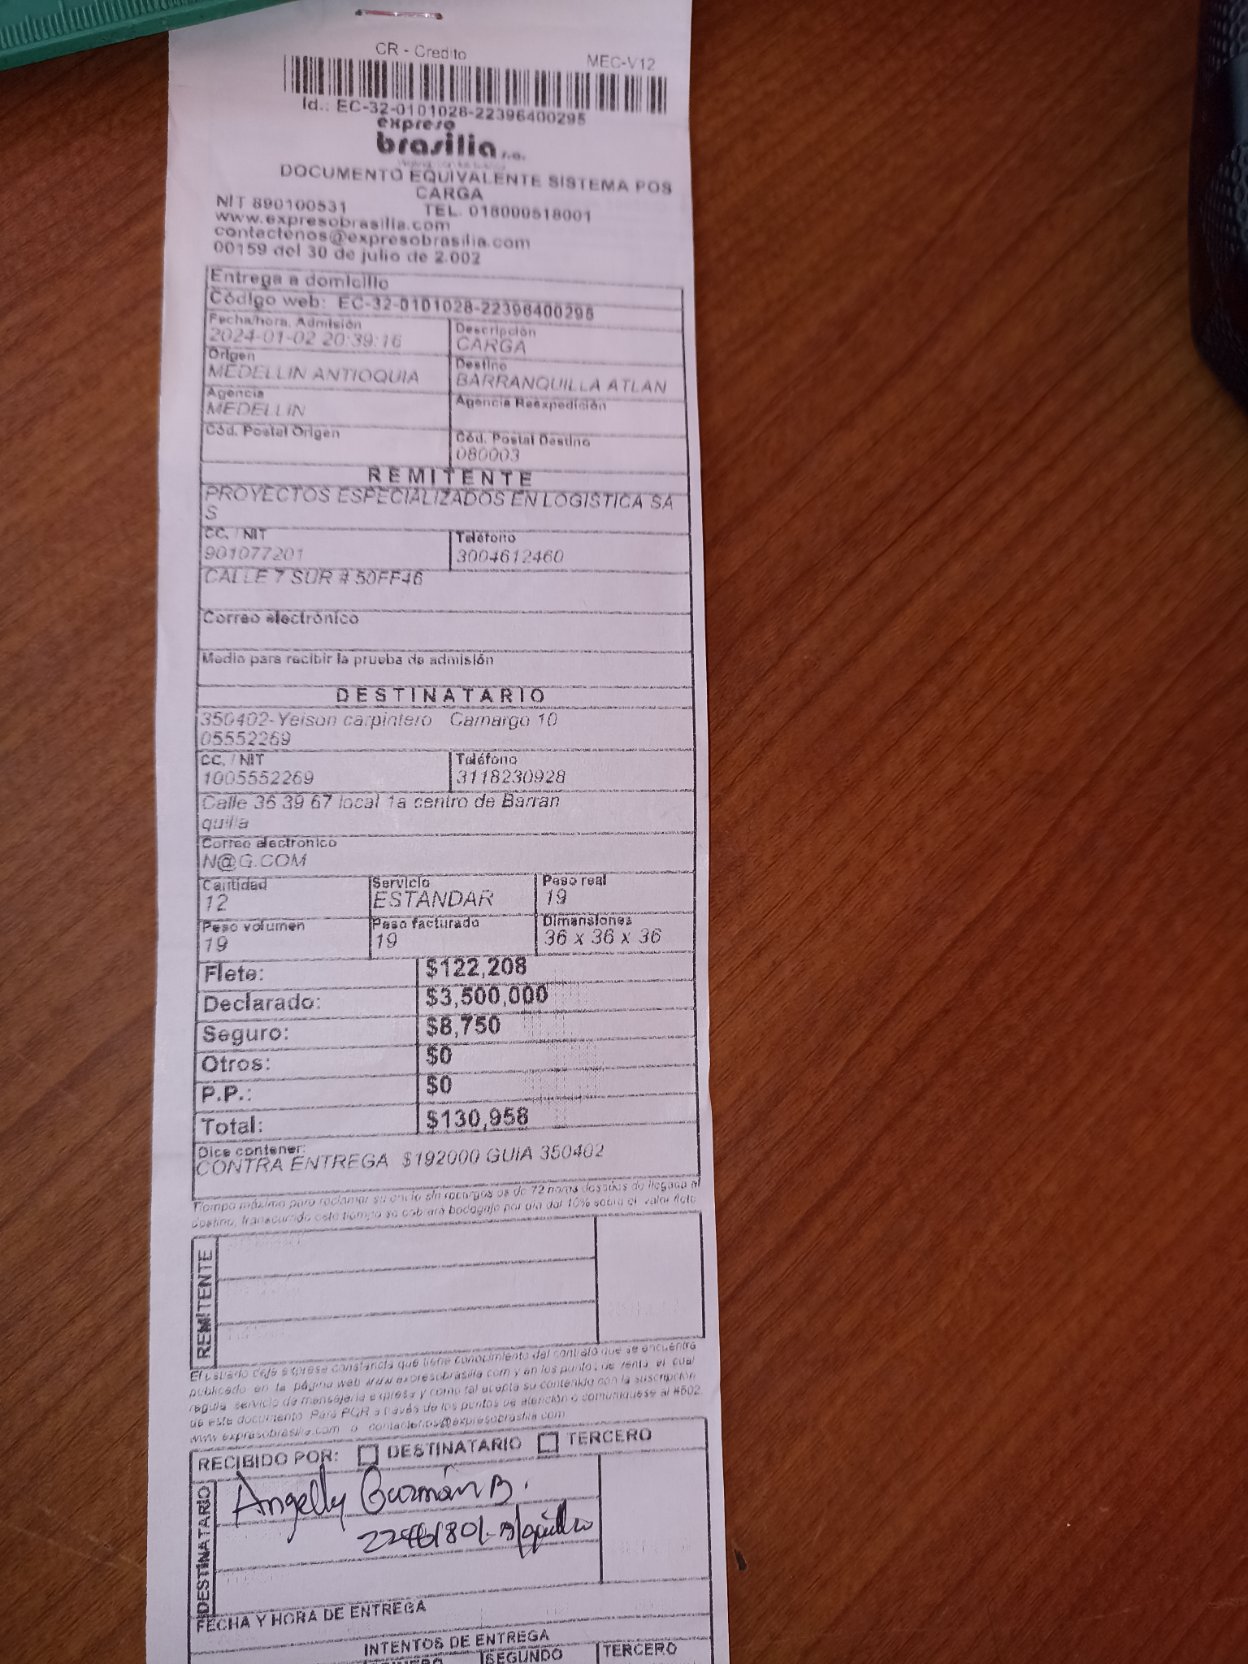 CR - Credito
MEC-V12
Id.: EC-32-0101028-22396400295
expreso
brasilia s.a.
DOCUMENTO EQUIVALENTE SISTEMA POS
CARGA
NIT 890100531 TEL. 018000518001
www.expresobrasilia.com
contactenos@expresobrasilia.com
00159 del 30 de julio de 2.002
Entrega a domicilio
Código web: EC-32-0101028-22396400295
Fecha/hora. Admisión Descripción
2024-01-02 20:39:16 CARGA
Origen Destino
MEDELLIN ANTIOQUIA BARRANQUILLA ATLAN
Agencia Agencia Reexpedición
MEDELLIN
Cód. Postal Origen Cód. Postal Destino
080003
REMITENTE
PROYECTOS ESPECIALIZADOS EN LOGISTICA SA
S
CC. / NIT Teléfono
901077201 3004612460
CALLE 7 SUR # 50FF46
Correo electrónico
Media para recibir la prueba de admisión
DESTINATARIO
350402-Yeison carpintero Camargo 10
05552269
CC. / NIT Teléfono
1005552269 3118230928
Calle 36 39 67 local 1a centro de Barran
quilla
Correo electronico
N@G.COM
Cantidad Servicio Peso real
12 ESTANDAR 19
Peso volumen Peso facturado Dimensiones
19 19 36 x 36 x 36
Flete: $122,208
Declarado: $3,500,000
Seguro: $8,750
Otros: $0
P.P.: $0
Total: $130,958
Dice contener:
CONTRA ENTREGA $192000 GUIA 350402
Tiempo máximo para reclamar su envío sin recargos es de 72 horas después de llegada al
destino, transcurrido este tiempo se cobrará bodegaje por día del 10% sobre el valor flete
REMITENTE
El usuario deja expresa constancia que tiene conocimiento del contrato que se encuentra
publicado en la página web www.expresobrasilia.com y en los puntos de venta el cual
regula servicio de mensajería expresa y como tal acepta su contenido con la suscripción
de este documento. Para PQR a través de los puntos de atención o comuníquese al #502.
www.expresobrasilia.com o contactenos@expresobrasilia.com
RECIBIDO POR: DESTINATARIO TERCERO
DESTINATARIO
Angelly Guzmán B.
FECHA Y HORA DE ENTREGA
INTENTOS DE ENTREGA
SEGUNDO TERCERO